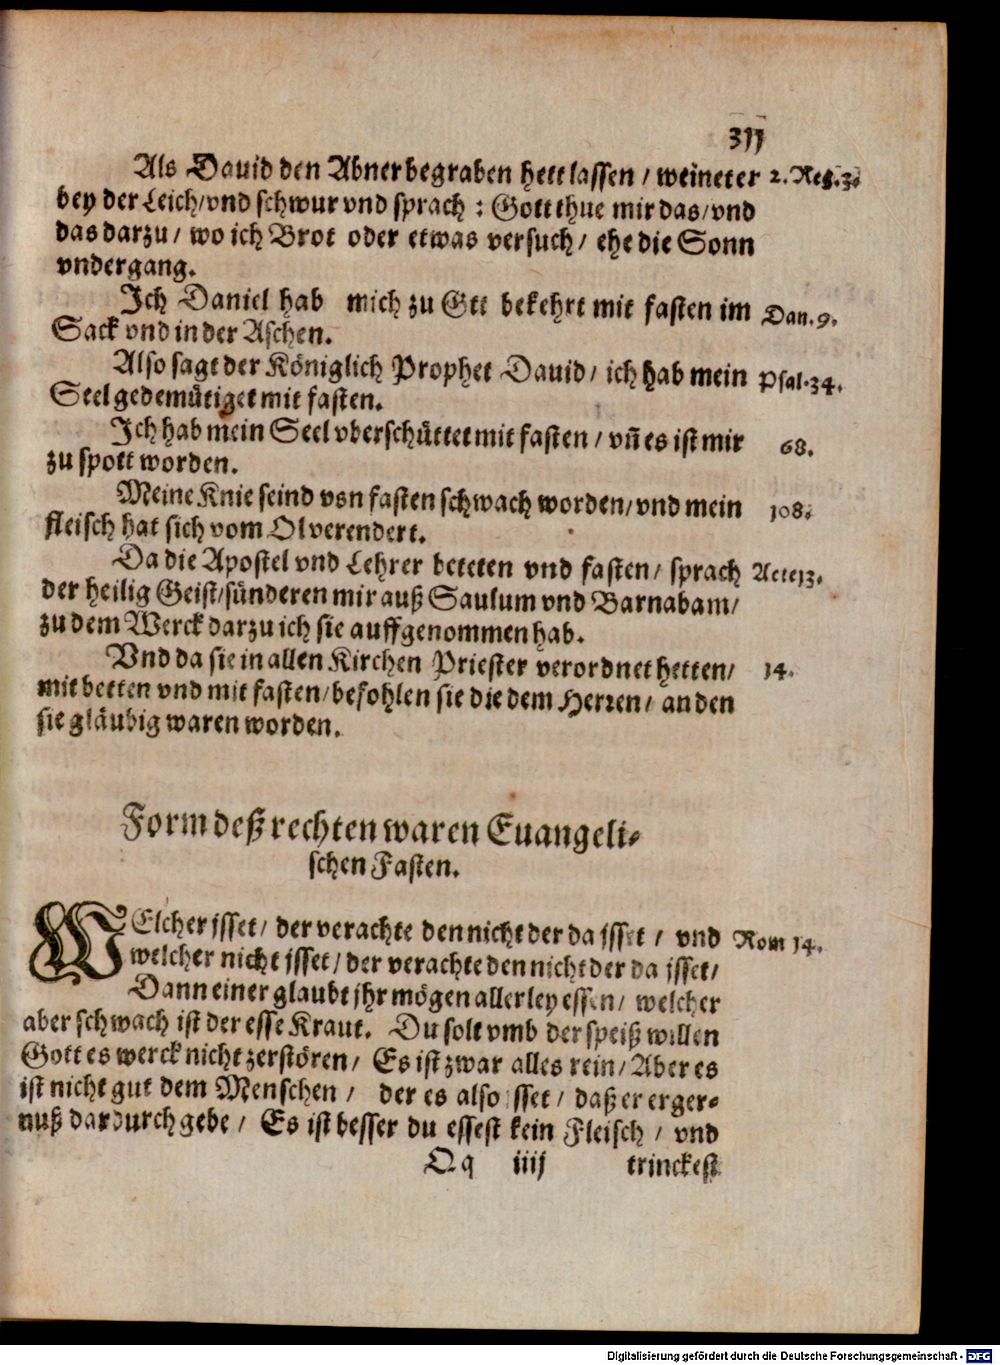 311
Als Dauid den Abner begraben hett lassen / weinet er 2. Reg. 3.
bey der Leich/vnd schwur vnd sprach : Gott thue mir das/vnd
das darzu / wo ich Brot oder etwas versuch / ehe die Sonn
vndergang.
Ich Daniel hab mich zu Gtt bekehrt mit fasten im Dan. 9.
Sack vnd in der Aschen.
Also sagt der Königlich Prophet Dauid / ich hab mein Psal. 34.
Seel gedemütiget mit fasten.
Ich hab mein Seel vberschüttet mit fasten / vñ es ist mir 68.
zu spott worden.
Meine Knie seind von fasten schwach worden/vnd mein 108.
fleisch hat sich vom Ol verendert.
Da die Apostel vnd Lehrer beteten vnd fasten / sprach Acte 13.
der heilig Geist/sünderen mir auß Saulum vnd Barnabam/
zu dem Werck darzu ich sie auffgenommen hab.
Vnd da sie in allen Kirchen Priester verordnet hetten/ 14.
mit betten vnd mit fasten/befohlen sie die dem Herren / an den
sie gläubig waren worden.
Form deß rechten waren Euangeli-
schen Fasten.
WElcher isset / der verachte den nicht der da isset / vnd Rom 14.
welcher nicht isset / der verachte den nicht der da isset/
Dann einer glaubt jhr mögen allerley essen / welcher
aber schwach ist der esse Kraut. Du solt vmb der speiß willen
Gottes werck nicht zerstören / Es ist zwar alles rein / Aber es
ist nicht gut dem Menschen / der es also isset / daß er erger-
nuß dardurch gebe / Es ist besser du essest kein Fleisch / vnd
Qq iiij trinckest
Digitalisierung gefördert durch die Deutsche Forschungsgemeinschaft - DFG